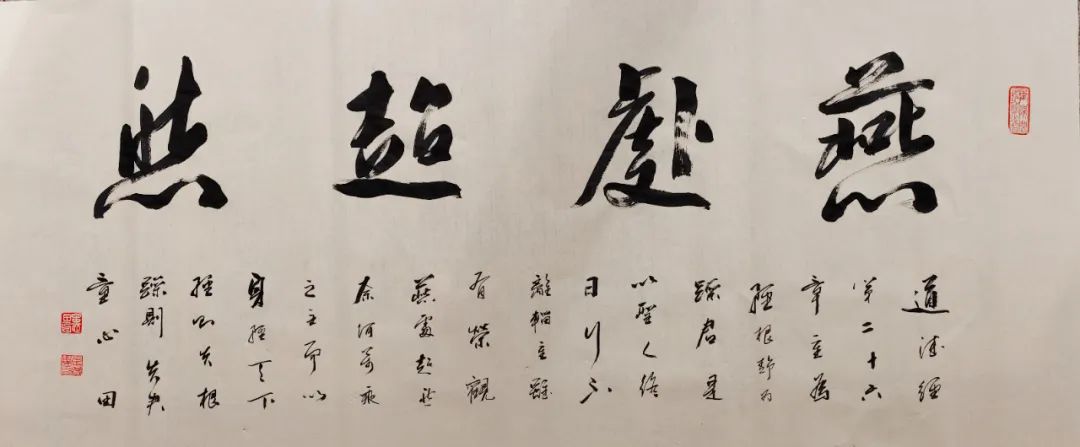 燕處超然
道德經
第二十六
章重為
輕根靜為
躁君是
以聖人終
日行不
離輜重雖
有榮觀
燕處超然
奈何萬乘
之主而以
身輕天下
輕則失根
躁則失君
童心田